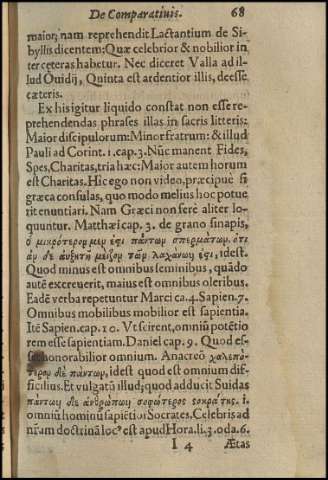 De Comparatiuis. 68
maiori, nam reprehendit Lactantium de Si-
byllis dicentem: Quæ celebrior & nobilior in
ter cęteras habetur. Nec diceret Valla ad il-
lud Ouidij, Quinta est ardentior illis, de esse,
cæteris.
Ex his igitur liquido constat non esse re-
prehendendas phrases illas in sacris litteris:
Maior discipulorum: Minor fratrum: & illud
Pauli ad Corint. 1. cap. 3. Nũc manent Fides,
Spes, Charitas, tria hæc: Maior autem horum
est Charitas. Hic ego non video, præcipuè si
græca consulas, quo modo melius hoc potue
rit enuntiari. Nam Græci non ferè aliter lo-
quuntur. Matthæi cap. 3. de grano sinapis,
ὁ μικρότερον μὲν ἐςι πάντων σπερμάτων. ὅτι
ἀν δὲ ἀυξηθῆ μεῖζον τῶν λαχάνων ἐςι, id est.
Quod minus est omnibus seminibus, quãdo
autē excreuerit, maius est omnibus oleribus.
Eadē verba repetuntur Marci ca. 4. Sapien. 7.
Omnibus mobilibus mobilior est sapientia.
Itē Sapien. cap. 10. Vt scirent, omniũ potētio
rem esse sapientiam. Daniel cap. 9. Quod es-
honorabilior omnium. Anacreõ χαλεπό-
τερον δὲ πάντων, id est quod est omnium dif-
ficilius. Et vulgatũ illud; quod adducit Suidas
πάντων δὲ ἀνθρώπων σοφώτερος σοκράτης. i.
omniũ hominũ sapiētior Socrates. Celebris ad
nr̃am doctrinã loc⁹ est apud Hora. li. 3. oda. 6.
I 4 Ætas